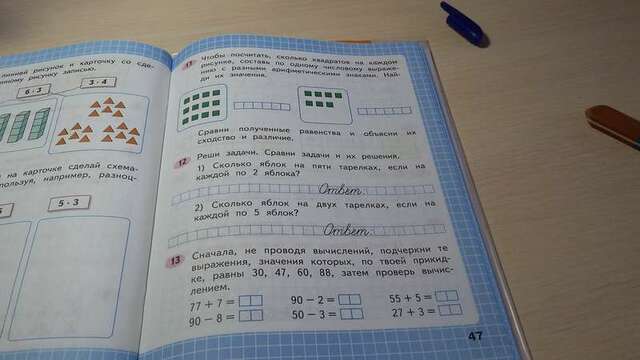 линией рисунок и карточку со сде-
нному рисунку записью.
6 · 3
3 · 4
на карточке сделай схема-
пользуя, например, разноц-
5 · 3
11 Чтобы посчитать, сколько квадратов на каждом
рисунке, составь по одному числовому выраже-
нию с разными арифметическими знаками. Най-
ди их значения.
Сравни полученные равенства и объясни их
сходство и различие.
12 Реши задачи. Сравни задачи и их решения.
1) Сколько яблок на пяти тарелках, если на
каждой по 2 яблока?
Ответ:
2) Сколько яблок на двух тарелках, если на
каждой по 5 яблок?
Ответ:
13 Сначала, не проводя вычислений, подчеркни те
выражения, значения которых, по твоей прикид-
ке, равны 30, 47, 60, 88, затем проверь вычис-
лением.
77 + 7 = 90 − 2 = 55 + 5 =
90 − 8 = 50 − 3 = 27 + 3 =
47